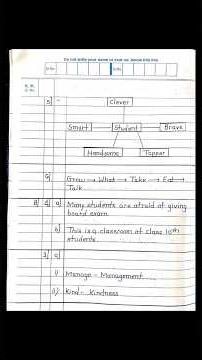 Do not write your name or exam no. below this line
5) - Clever
Smart Student Brave
Handsome Topper
6) Grow → What → Take → Eat →
Talk
2) a) Many students are afraid of giving
board exam.
b) This is a classroom of class 10th
students.
3) i) Manage - Management
ii) Kind - Kindness